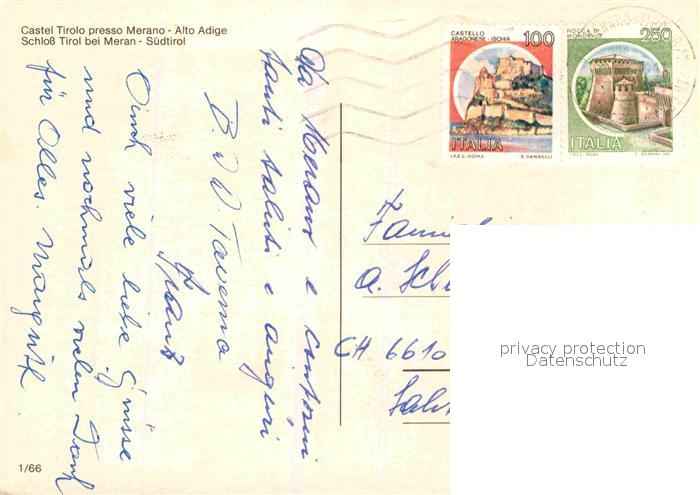 Castel Tirolo presso Merano - Alto Adige
Schloß Tirol bei Meran - Südtirol
CASTELLO
ARAGONESE - ISCHIA
100
ITALIA
I.P.Z.S. - ROMA E. VANGELLI
ROCCA DI
MONDAVIO
250
ITALIA
I.P.Z.S. - ROMA
Da Merano e
tanti saluti e auguri
B. W. Taverna
Auch viele liebe Grüsse
und nochmals vielen Dank
für Alles. Margrith
Famil
A. Sch
CH 6610
privacy protection
Datenschutz
1/66